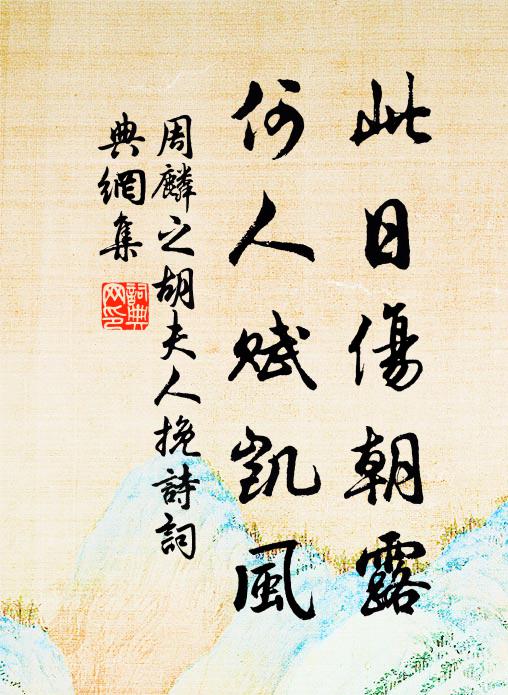 此日傷朝露
何人賦凱風
周麟之胡夫人挽詩詞
典網集
詞典
网印